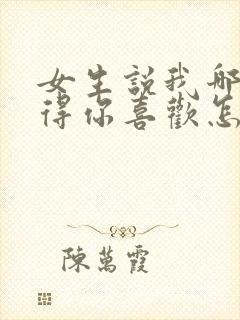 女生說我哪
得你喜歡怎
陳萬霞